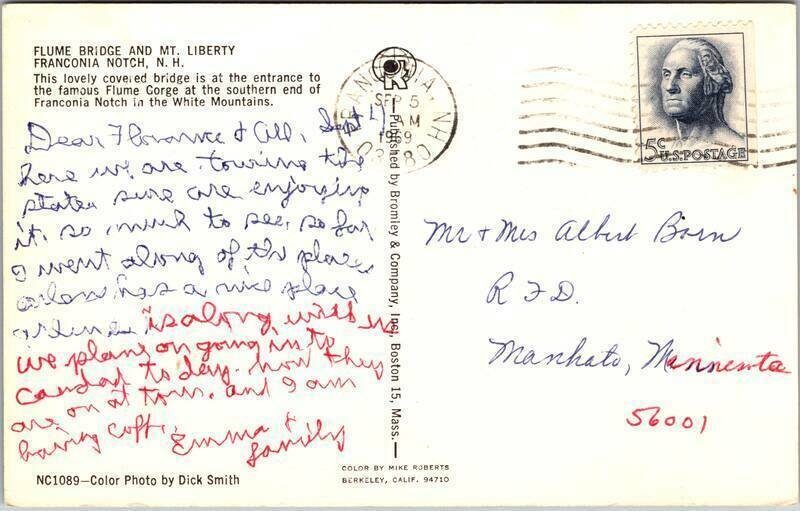 FLUME BRIDGE AND MT. LIBERTY
FRANCONIA NOTCH, N. H.
This lovely covered bridge is at the entrance to
the famous Flume Gorge at the southern end of
Franconia Notch in the White Mountains.
Dear Florance & All, Sept 4
here we are touring the
states sure are enjoying
it. so much to see. so far
I went along of the places
has a nice place
is along with us
we plans on going in to
Canada to day. now they
are on at town. and I am
having coffe.
Emma &
family
NC1089—Color Photo by Dick Smith
Published by Bromley & Company, Inc., Boston 15, Mass.
COLOR BY MIKE ROBERTS
BERKELEY, CALIF. 94710
FRANCONIA, NH
SEP 5
AM
1969
03580
5c
U.S. POSTAGE
Mr & Mrs Albert Born
R F D.
Mankato, Minnesota
56001